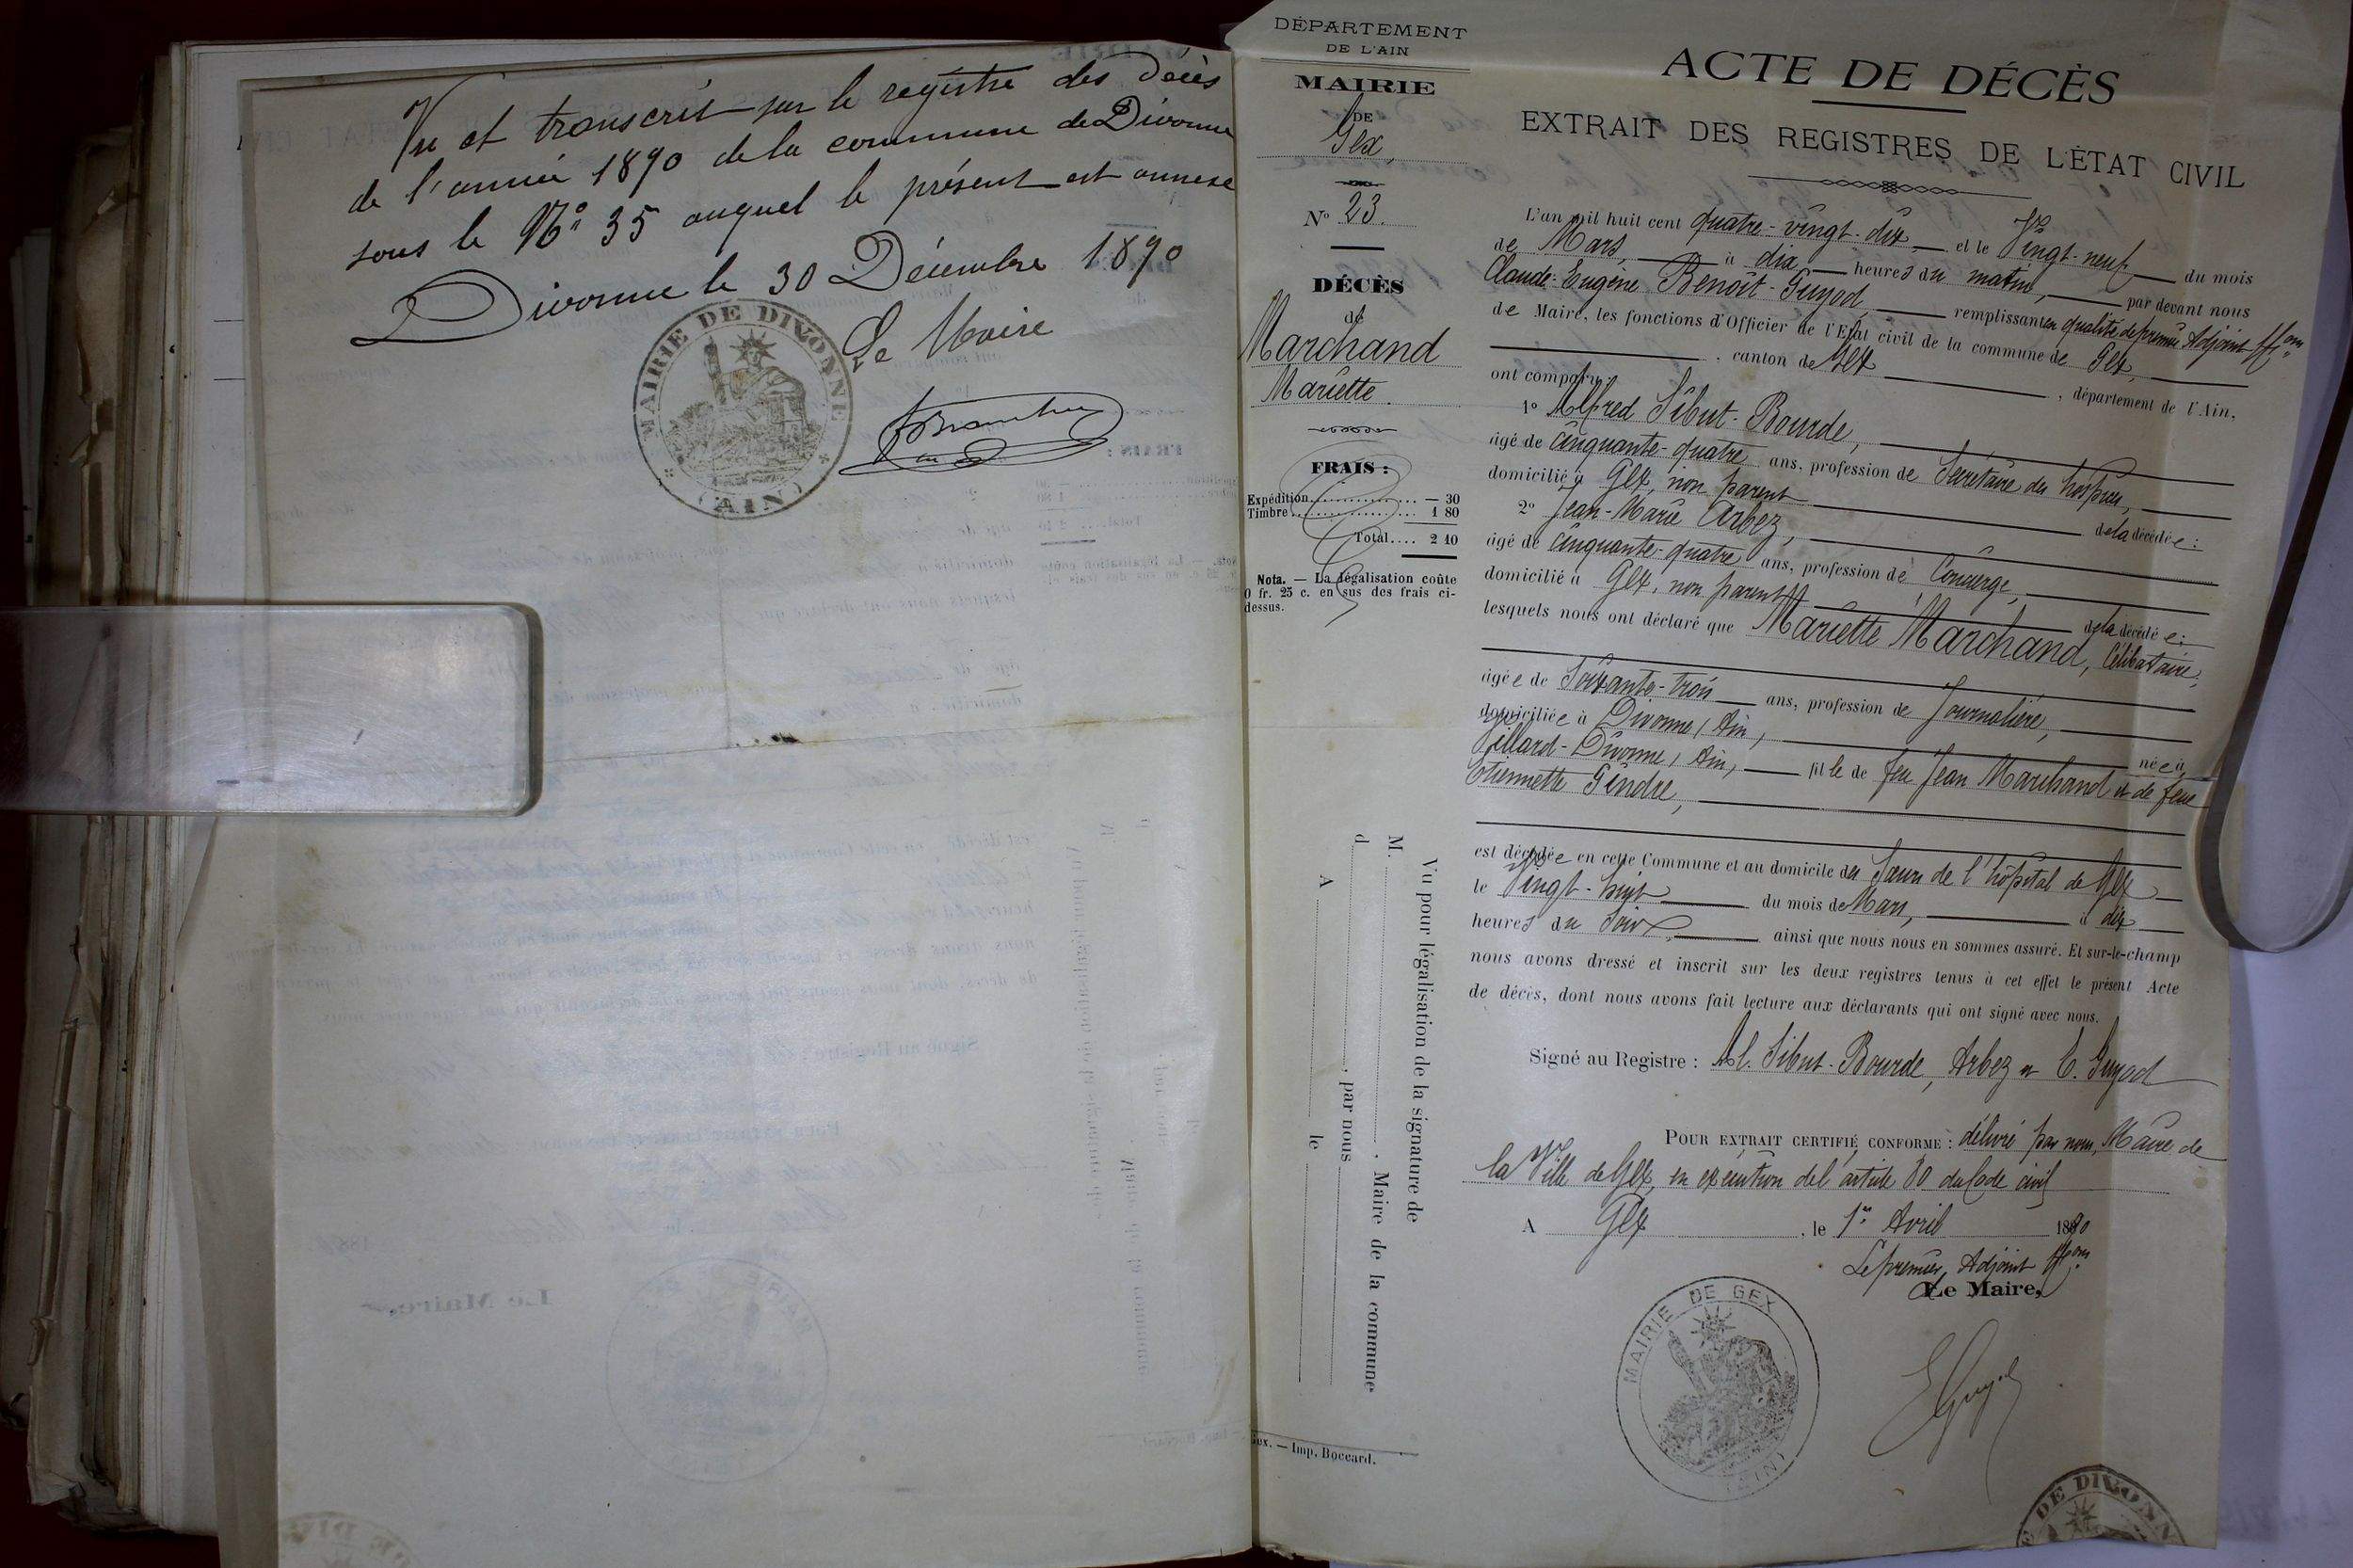 Vu et transcrit sur le registre des décès
de l'année 1890 de la commune de Divonne
sous le No 35 auquel le présent est annexé
Divonne le 30 Décembre 1890
Le Maire
MAIRIE DE DIVONNE
(AIN)
DÉPARTEMENT
DE L'AIN
MAIRIE
DE
Gex,
No 23.
DÉCÈS
de
Marchand
Mariette.
FRAIS :
Expédition — 30
Timbre 1 80
Total.... 2 10
Nota. — La légalisation coûte
0 fr. 25 c. en sus des frais ci-
dessus.
Vu pour légalisation de la signature de
M. , Maire de la commune
d , par nous
A le
Gex. — Imp. Boccard.
ACTE DE DÉCÈS
EXTRAIT DES REGISTRES DE L'ÉTAT CIVIL
L'an mil huit cent quatre-vingt-dix et le Vingt-neuf du mois
de Mars, à dix heures du matin, par devant nous
Claude-Eugène Benoît-Guyod, remplissant en qualité de premier Adjoint ffons
de Maire, les fonctions d'Officier de l'Etat civil de la commune de Gex,
, canton de Gex , département de l'Ain,
ont comparu :
1o Alfred Sibut-Bourde,
âgé de cinquante-quatre ans, profession de Secrétaire des hospices,
domicilié à Gex, non parent de la décédée :
2o Jean-Marie Arbez,
âgé de cinquante-quatre ans, profession de Concierge,
domicilié à Gex, non parent de la décédée :
lesquels nous ont déclaré que Mariette Marchand, Célibataire,
âgée de Soixante-trois ans, profession de Journalière,
domiciliée à Divonne (Ain), née à
Villard-Divonne (Ain), fille de feu Jean Marchand et de feue
Etiennette Gindre,
est décédée en cette Commune et au domicile des Sœurs de l'hôpital de Gex
le Vingt-huit du mois de Mars, à dix
heures du Soir, ainsi que nous nous en sommes assuré. Et sur-le-champ
nous avons dressé et inscrit sur les deux registres tenus à cet effet le présent Acte
de décès, dont nous avons fait lecture aux déclarants qui ont signé avec nous.
Signé au Registre : Al. Sibut-Bourde, Arbez et E. Guyod
POUR EXTRAIT CERTIFIÉ CONFORME : délivré par nous, Maire de
la Ville de Gex, en exécution de l'article 80 du Code civil
A Gex , le 1er Avril 1890
Le premier Adjoint ffons
Le Maire,
EGuyod
MAIRIE DE GEX
(AIN)
DE DIVONN